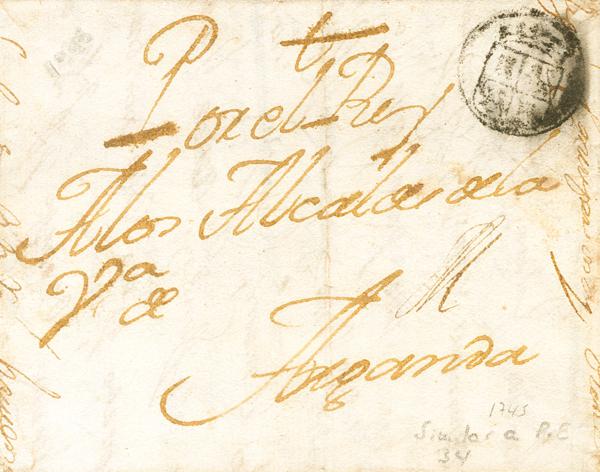 †
Por el Rey
A los Alcaldes de la
Vª de
Arganda
1745
Similar a P.E
34